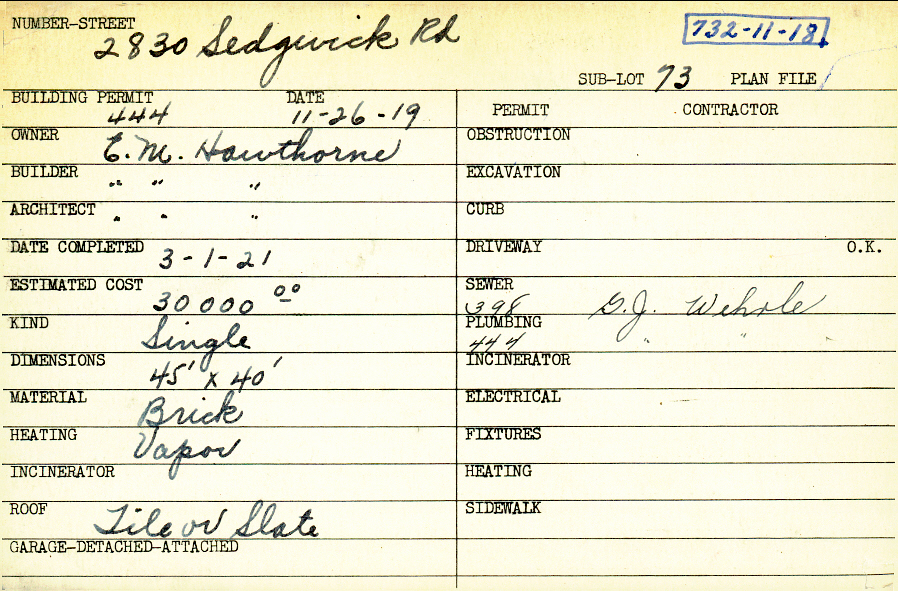 NUMBER-STREET
2830 Sedgwick Rd
732-11-18
SUB-LOT 73 PLAN FILE
BUILDING PERMIT DATE
444 11-26-19
PERMIT CONTRACTOR
OWNER E. M. Hawthorne
OBSTRUCTION
BUILDER " " "
EXCAVATION
ARCHITECT " " "
CURB
DATE COMPLETED 3-1-21
DRIVEWAY O.K.
ESTIMATED COST 30000 00
SEWER 398 G.J. Wehrle
KIND Single
PLUMBING 444 " "
DIMENSIONS 45' x 40'
INCINERATOR
MATERIAL Brick
ELECTRICAL
HEATING Vapor
FIXTURES
INCINERATOR
HEATING
ROOF Tile or Slate
SIDEWALK
GARAGE-DETACHED-ATTACHED